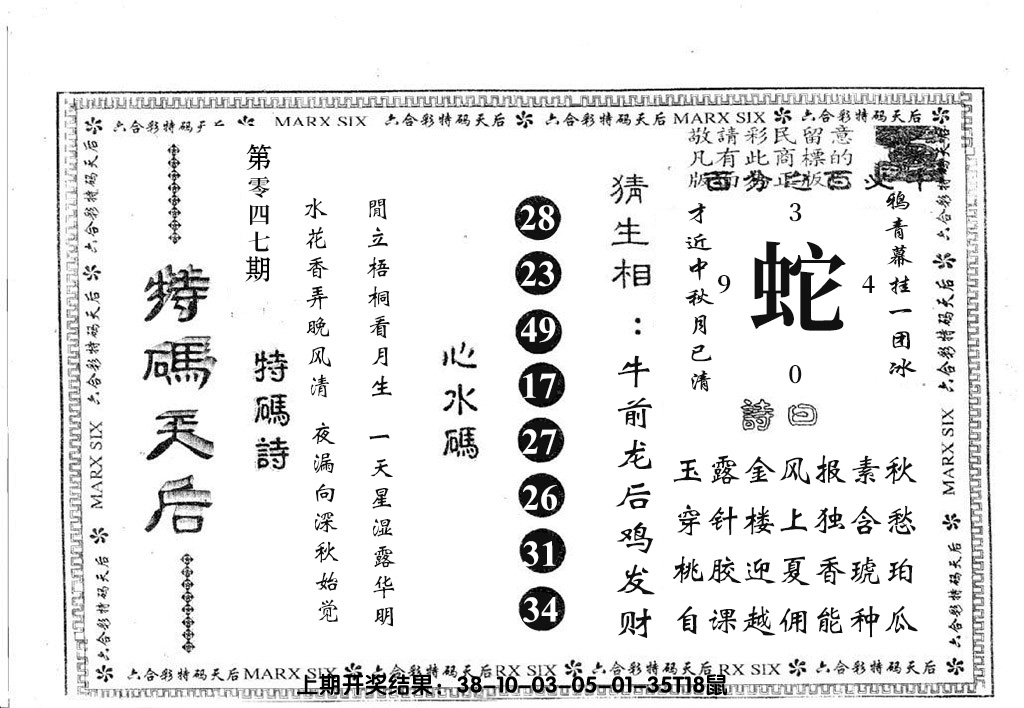 六合彩特码天后 MARX SIX 六合彩特码天后 六合彩特码天后 MARX SIX 六合彩特码天后
敬請彩民留意
凡有此商標的
版
特碼天后
第零四七期
特碼詩
水花香弄晚风清 夜漏向深秋始觉
閒立梧桐看月生 一天星湿露华明
心水碼
28
23
49
17
27
26
31
34
猜生相：牛前龙后鸡发财
才近中秋月已清
3
9 蛇 4
0
鸦青幕挂一团冰
詩曰
玉露金风报素秋
穿针楼上独含愁
桃胶迎夏香琥珀
自课越佣能种瓜
六合彩特码天后 MARX SIX 六合彩特码天后
六合彩特码天后 MARX SIX 六合彩特码天后
六合彩特码天后 MARX SIX 六合彩特码天后 RX SIX 六合彩特码天后 RX SIX 六合彩特码天后
上期开奖结果：38-10-03-05-01-35T18鼠